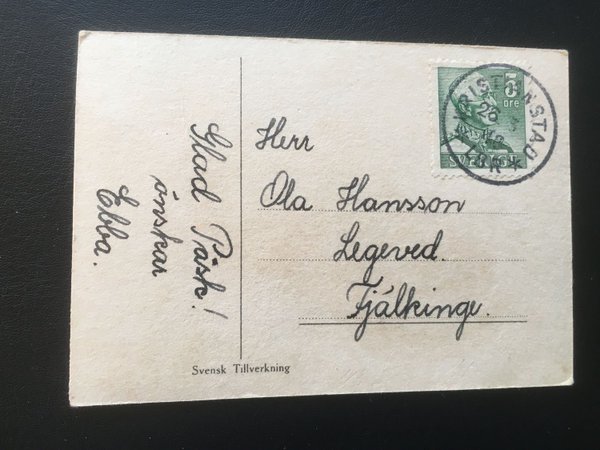 Glad Påsk!
önskar
Ebba.
Herr
Ola Hansson
Legeved.
Fjälkinge.
5
ÖRE
SVERIGE
KRISTIANSTAD
26
Svensk Tillverkning